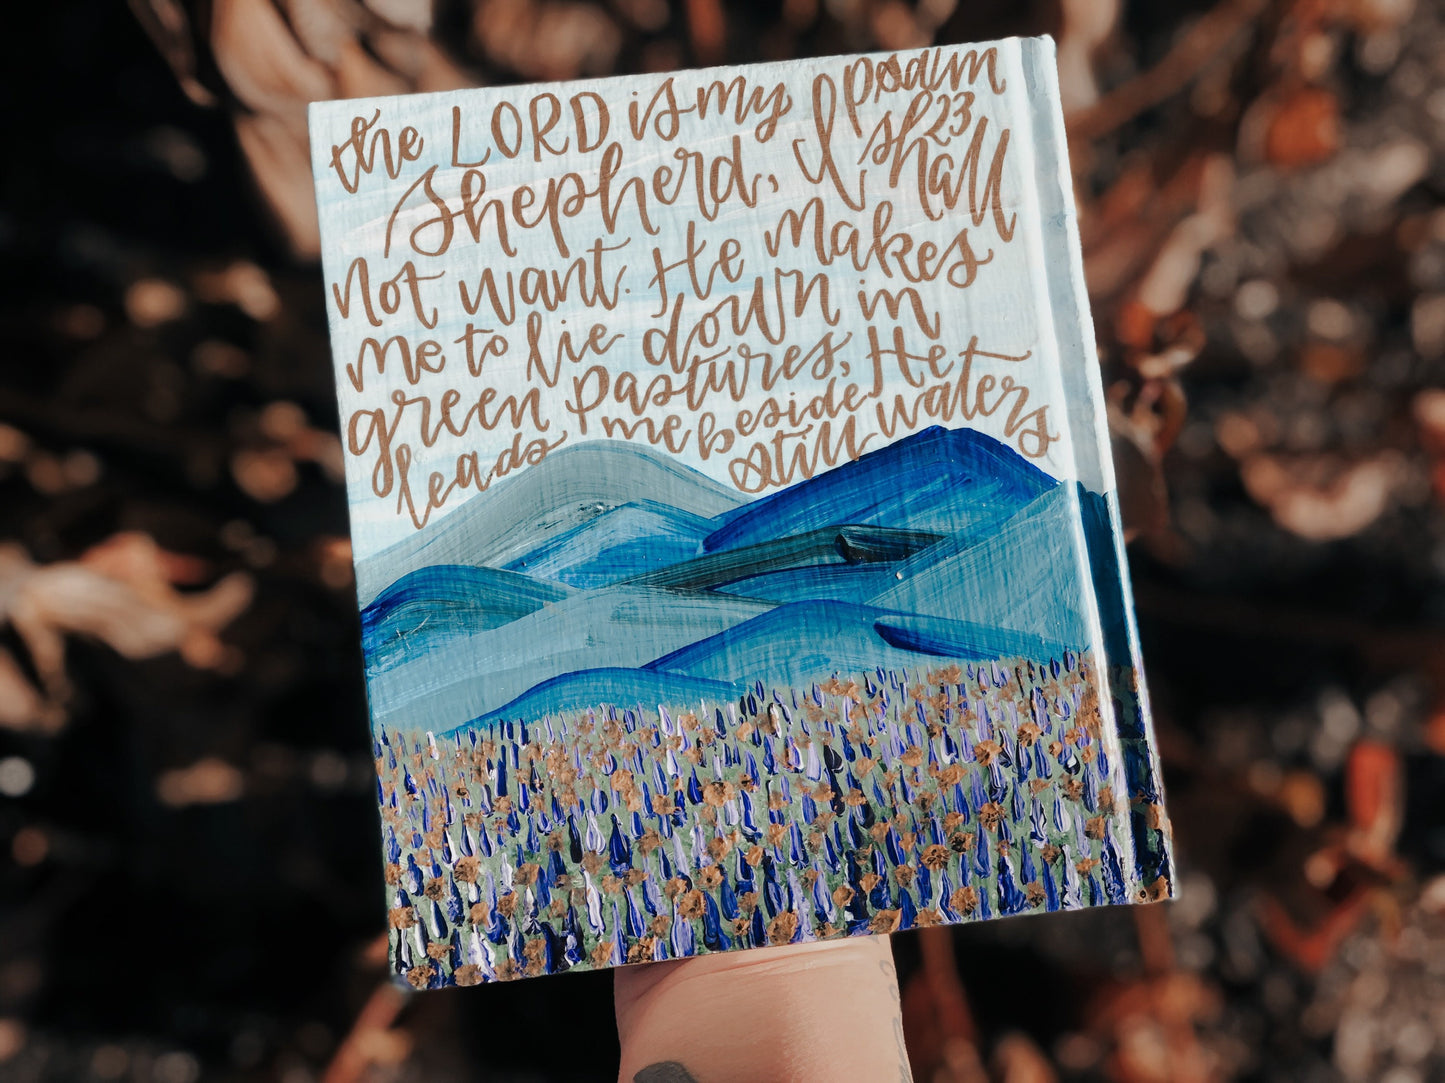 the LORD is my
Shepherd, I shall
not want. He makes
me to lie down in
green pastures, He
leads me beside
still waters
psalm
23